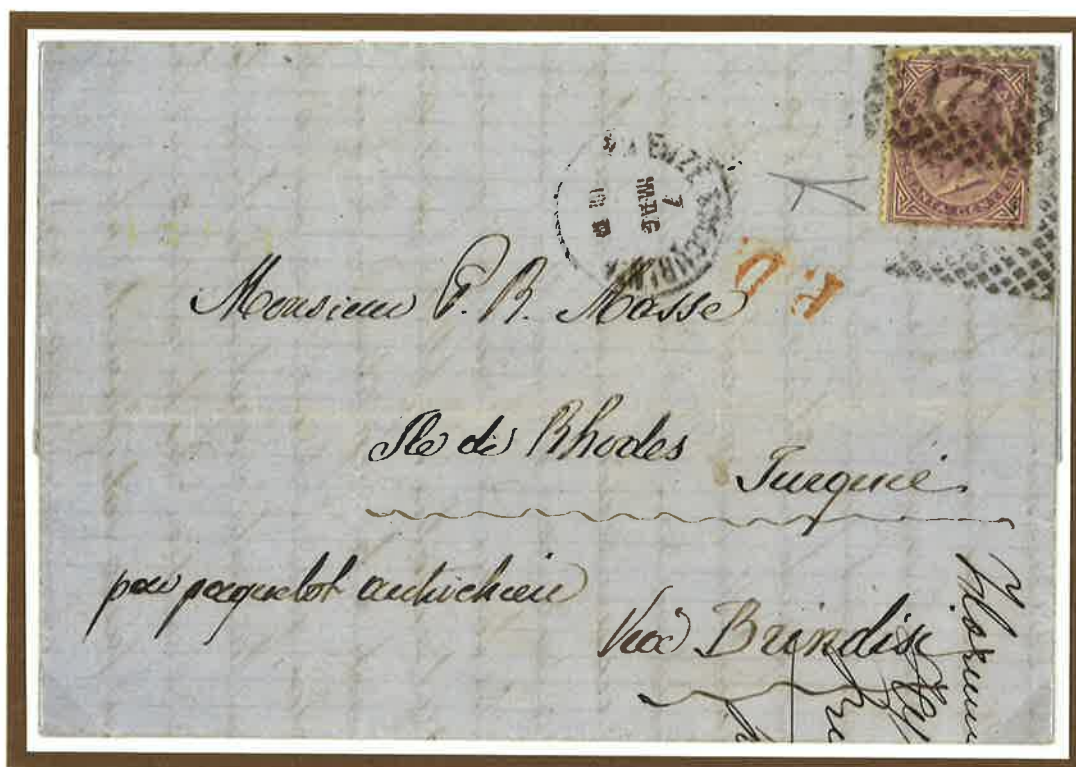 7
MAG
P.D.
Monsieur P. R. Masse
Ile de Rhodes
Turquie
par paquebot autrichien
Via Brindisi